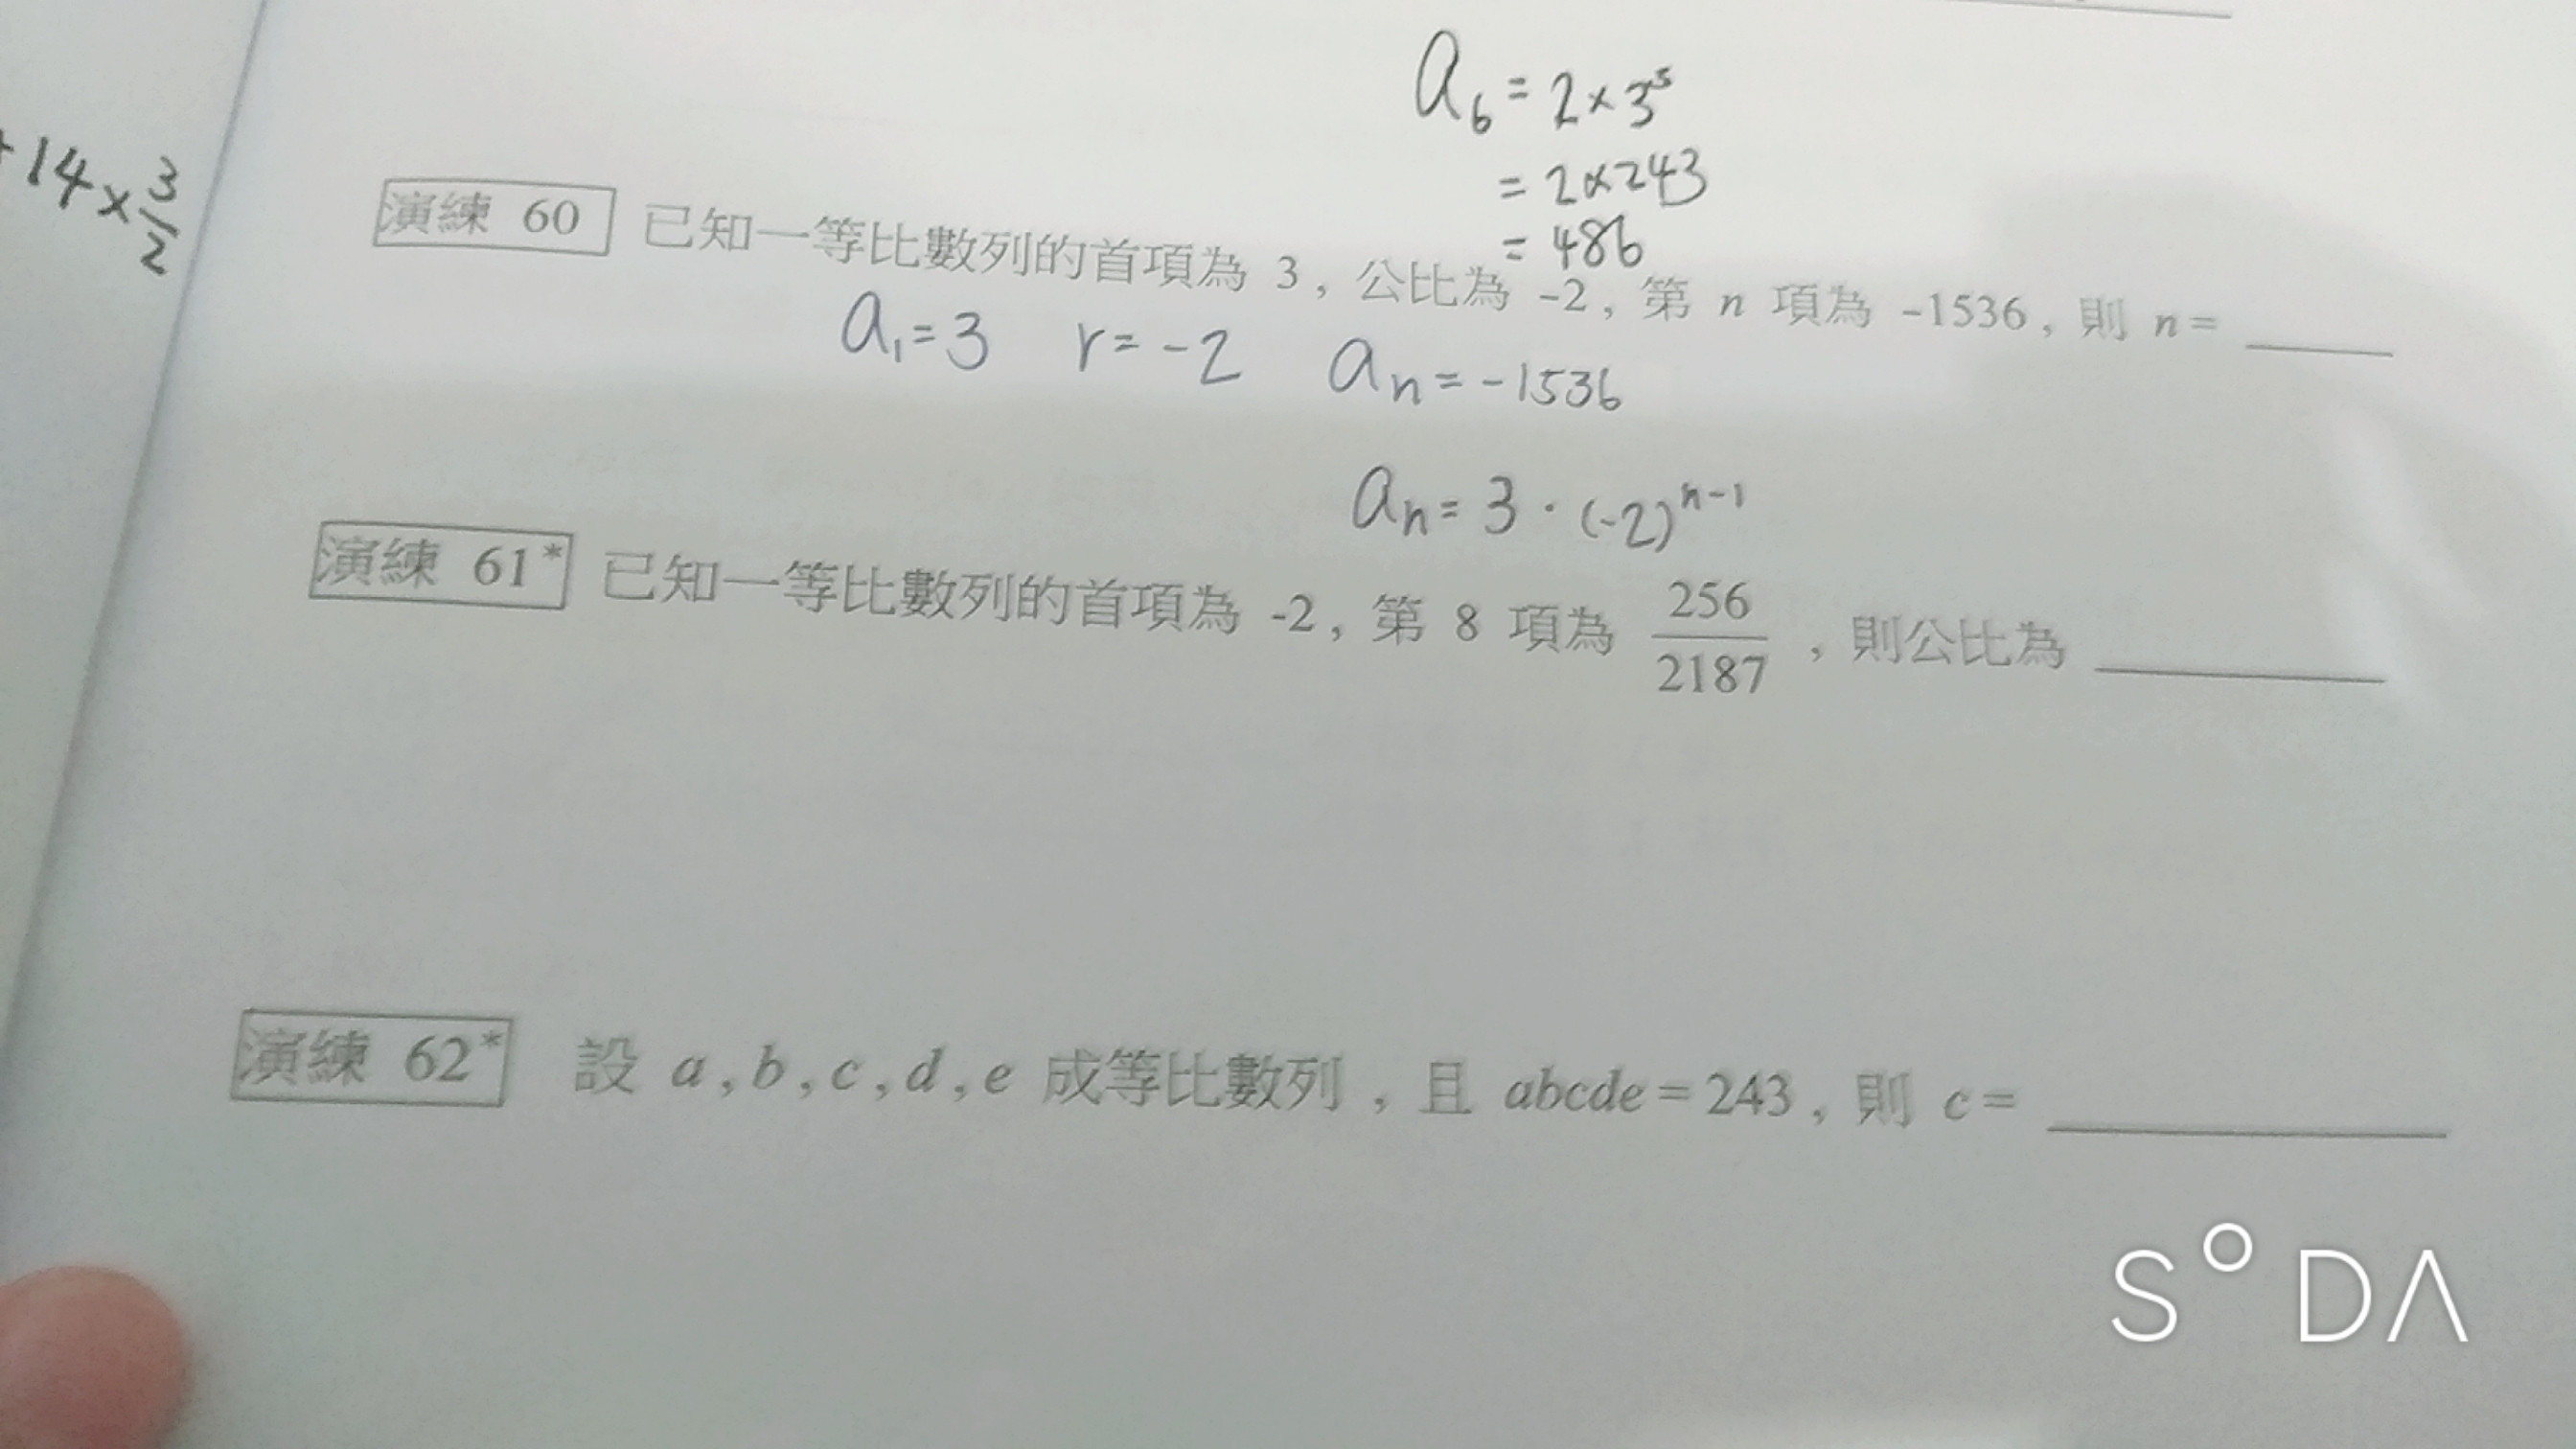 a₆ = 2×3⁵
= 2×243
= 486
14×3/2
演練 60 已知一等比數列的首項為 3，公比為 -2，第 n 項為 -1536，則 n = ____
a₁=3 r=-2 aₙ=-1536
aₙ=3·(-2)ⁿ⁻¹
演練 61* 已知一等比數列的首項為 -2，第 8 項為 256/2187，則公比為 ____
演練 62* 設 a , b , c , d , e 成等比數列，且 abcde = 243，則 c = ____
S°DA